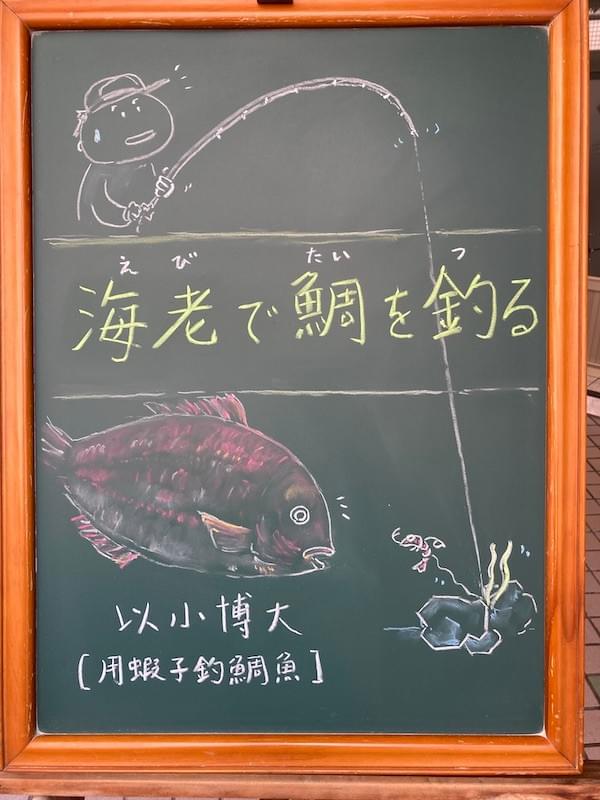 えび たい つ
海老で鯛を釣る
以小博大
[用蝦子釣鯛魚]